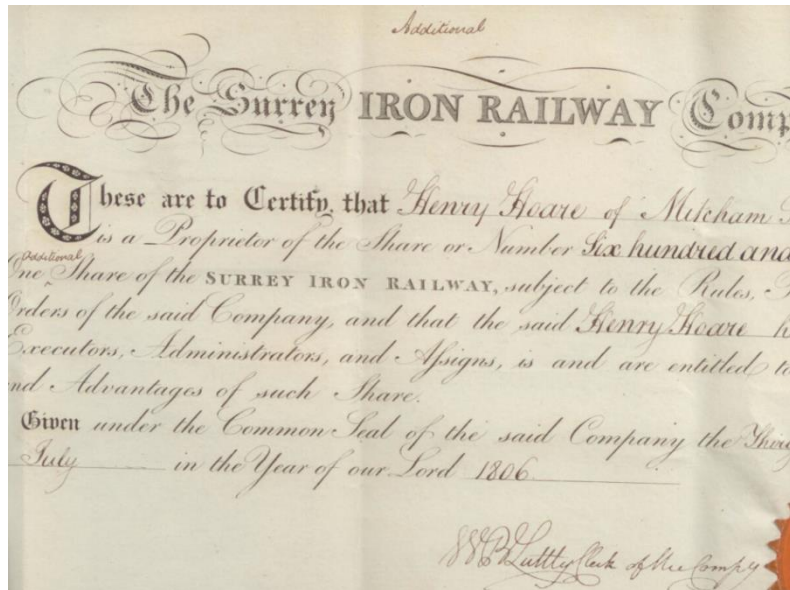 Additional
The Surrey IRON RAILWAY Comp
These are to Certify, that Henry Hoare of Mitcham
is a Proprietor of the Share or Number Six hundred and
Additional
One Share of the SURREY IRON RAILWAY, subject to the Rules,
Orders of the said Company, and that the said Henry Hoare h
Executors, Administrators, and Assigns, is and are entitled to
and Advantages of such Share.
Given under the Common Seal of the said Company the
July in the Year of our Lord 1806.
Clerk of the Compy